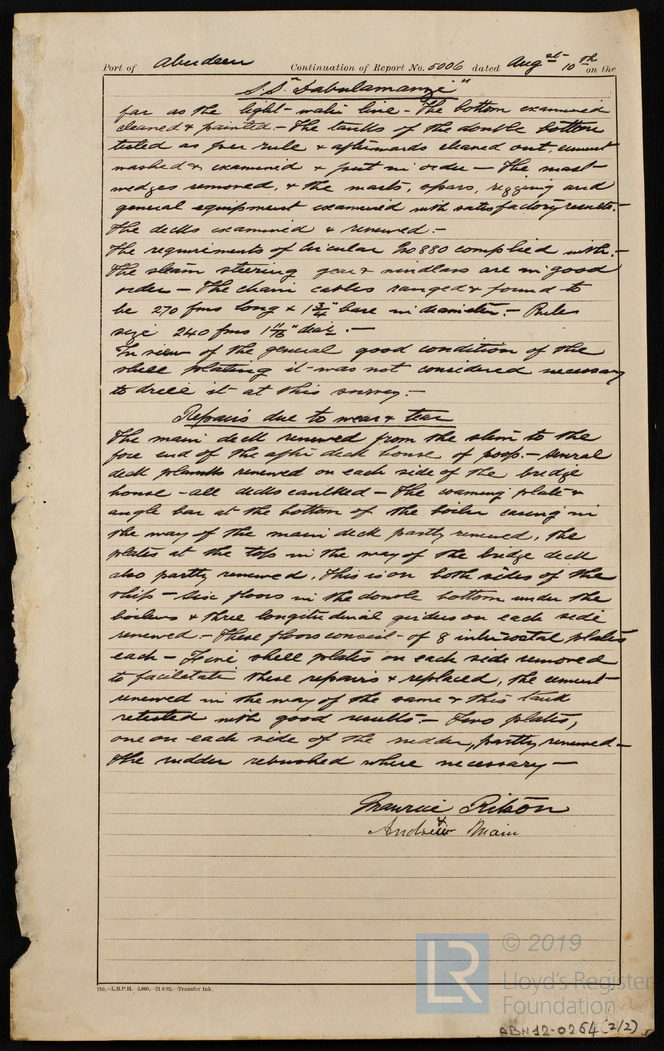 Port of Aberdeen Continuation of Report No. 5006 dated Augst 10th on the
S.S. "Dabulamanzi"
far as the light-water line - The bottom examined
cleaned & painted - The tanks of the double bottom
tested as per rule & afterwards cleaned out, cement
washed & examined & put in order - The mast
wedges removed, & the masts, spars, rigging and
general equipment examined with satisfactory results. -
The decks examined & renewed. -
The requirements of Circular No 880 complied with. -
The steam steering gear & windlass are in good
order - The chain cables ranged & found to
be 270 fms long & 1 3/4" bare in diameter. - Rule
size 240 fms 1 11/16" diar. -
In view of the general good condition of the
shell plating it was not considered necessary
to drill it at this survey. -
Repairs due to wear & tear
The main deck renewed from the stem to the
fore end of the after deck house of poop. - Several
deck planks renewed on each side of the bridge
house - all decks caulked - The coaming plate &
angle bar at the bottom of the boiler casing in
the way of the main deck partly renewed, the
plates at the top in the way of the bridge deck
also partly renewed. This is on both sides of the
ship - Six floors in the double bottom under the
boilers & three longitudinal girders on each side
renewed - These floors consist of 8 intercostal plates
each - Five shell plates on each side removed
to facilitate these repairs & replaced, the cement
renewed in the way of the same & this tank
retested with good results - Two plates,
one on each side of the rudder, partly renewed -
The rudder rebushed where necessary -
Maurice Ritson
&
Andrew Main
210.-L.R.P.H. 5,000.-21.6.92.-Transfer Ink.
LR © 2019
Lloyd's Register
Foundation
ABN12-0264 (2/2)